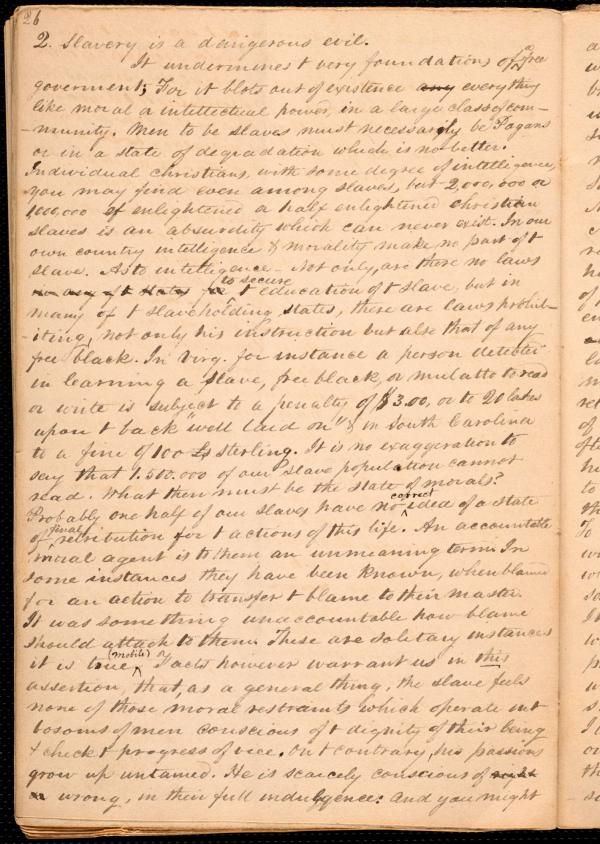 26
2. Slavery is a dangerous evil.
It undermines t very foundations of a free
goverment; For it blots out of existence any everything
like moral or intellectual power, in a large class of com-
-munity. Men to be slaves must necessarily be Pagans
or in a state of degradation which is no better.
Individual christians, with some degree of intelligence,
you may find even among slaves, but 2,000,000 or
1000,000 of enlightened or half enlightened christian
slaves is an absurdity which can never exist. In our
own country intelligence & morality make no part of t
slave. As to intelligence - Not only are there no laws
in any of t states for to secure t education of t slave, but in
many of t slaveholding states, there are laws prohib-
-iting, not only his instruction but also that of any
free black. In Virg. for instance a person detected
in learning a slave, free black, or mulatto to read
or write is subject to a penalty of $3.00, or to 20 lashes
upon t back "well laid on" & in South Carolina
to a fine of 100 £s sterling. It is no exaggeration to
say that 1.500.000 of our slave population cannot
read. What then must be the state of morals?
Probably one half of our slaves have no correct idea of a state
of final retribution for t actions of this life. An accountable
moral agent is to them an unmeaning term. In
some instances they have been known, when blamed
for an action to transfer t blame to their master.
It was something unaccountable how blame
should attach to them. These are solitary instances
it is true, (Mobile) Facts however warrant us in this
assertion, that, as a general thing, the slave feels
none of those moral restraints which operate in t
bosoms of men conscious of t dignity of their being
& check t progress of vice. On t contrary, his passions
grow up untamed. He is scarcely conscious of right
or wrong, in their full indulgence: And you might